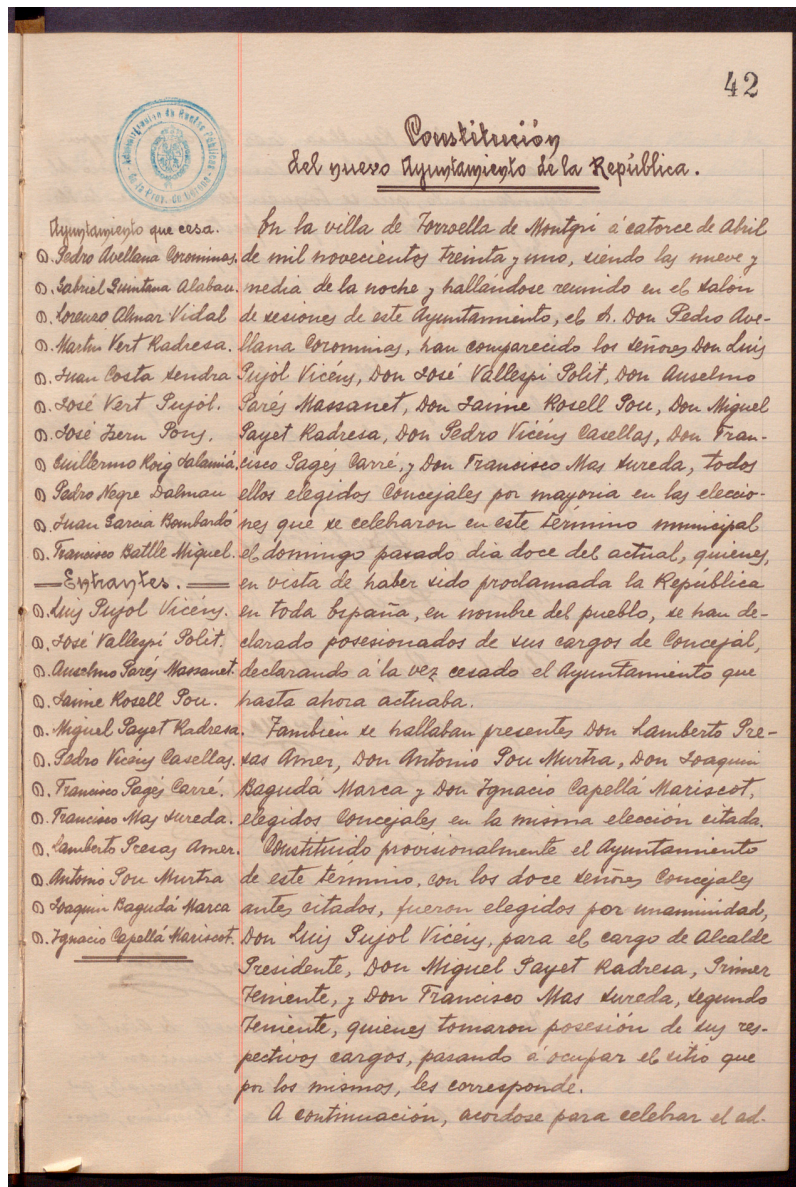 42
Administración de Rentas Públicas
de la Prov. de Gerona
Constitución
del nuevo Ayuntamiento de la República.
Ayuntamiento que cesa.
D. Pedro Avellana Corominas.
D. Gabriel Quintana Alabau.
D. Lorenzo Almar Vidal
D. Martin Vert Radresa.
D. Juan Costa Sendra
D. José Vert Pujol.
D. José Zern Pons.
D. Guillermo Roig Salamiá.
D. Pedro Negre Dalmau
D. Juan Garcia Bombardó
D. Francisco Batlle Miquel.
Entrantes.
D. Luis Pujol Vicéns.
D. José Vallespí Polit.
D. Anselmo Parés Massanet.
D. Jaime Rosell Pou.
D. Miguel Payet Radresa.
D. Pedro Vicéns Casellas.
D. Francisco Pagés Carré.
D. Francisco Mas Sureda.
D. Lamberto Presas Amer.
D. Antonio Pou Murtra
D. Joaquin Bagudá Marca
D. Ignacio Capellá Mariscot.
En la villa de Torroella de Montgrí á catorce de Abril
de mil novecientos treinta y uno, siendo las nueve y
media de la noche y hallándose reunido en el salón
de sesiones de este Ayuntamiento, el S. Don Pedro Ave-
llana Corominas, han comparecido los señores Don Luis
Pujol Vicéns, Don José Vallespí Polit, Don Anselmo
Parés Massanet, Don Jaime Rosell Pou, Don Miguel
Payet Radresa, Don Pedro Vicéns Casellas, Don Fran-
cisco Pagés Carré, y Don Francisco Mas Sureda, todos
ellos elegidos Concejales por mayoria en las eleccio-
nes que se celebraron en este término municipal
el domingo pasado dia doce del actual, quienes,
en vista de haber sido proclamada la República
en toda España, en nombre del pueblo, se han de-
clarado posesionados de sus cargos de Concejal,
declarando á la vez cesado el Ayuntamiento que
hasta ahora actuaba.
Tambien se hallaban presentes Don Lamberto Pre-
sas Amer, Don Antonio Pou Murtra, Don Joaquin
Bagudá Marca y Don Ignacio Capellá Mariscot,
elegidos Concejales en la misma elección citada.
Constituido provisionalmente el Ayuntamiento
de este término, con los doce señores Concejales
antes citados, fueron elegidos por unaminidad,
Don Luis Pujol Vicéns, para el cargo de Alcalde
Presidente, Don Miguel Payet Radresa, Primer
Teniente, y Don Francisco Mas Sureda, segundo
Teniente, quienes tomaron posesión de sus res-
pectivos cargos, pasando á ocupar el sitio que
por los mismos, les corresponde.
A continuación, acordose para celebrar el ad-